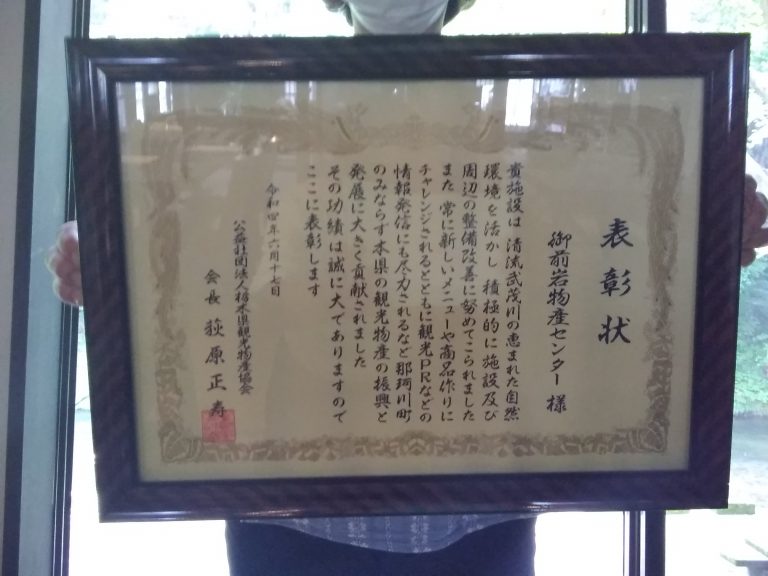 表彰状
御前岩物産センター 様
貴施設は 清流武茂川の恵まれた自然
環境を活かし 積極的に施設及び
周辺の整備改善に努めてこられました
また 常に新しいメニューや商品作りに
チャレンジされるとともに観光PRなどの
情報発信にも尽力されるなど那珂川町
のみならず本県の観光物産の振興と
発展に大きく貢献されました
その功績は誠に大でありますので
ここに表彰します
令和四年六月十七日
公益社団法人栃木県観光物産協会
会長 荻原正寿